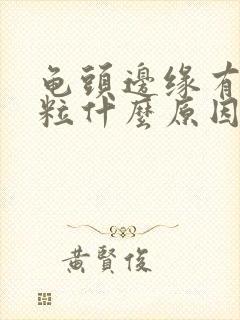 龟頭邊缘有
粒什麼原因
黃賢俊